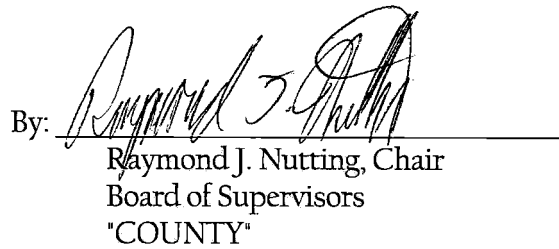 By: Raymond J. Nutting
Raymond J. Nutting, Chair
Board of Supervisors
"COUNTY"